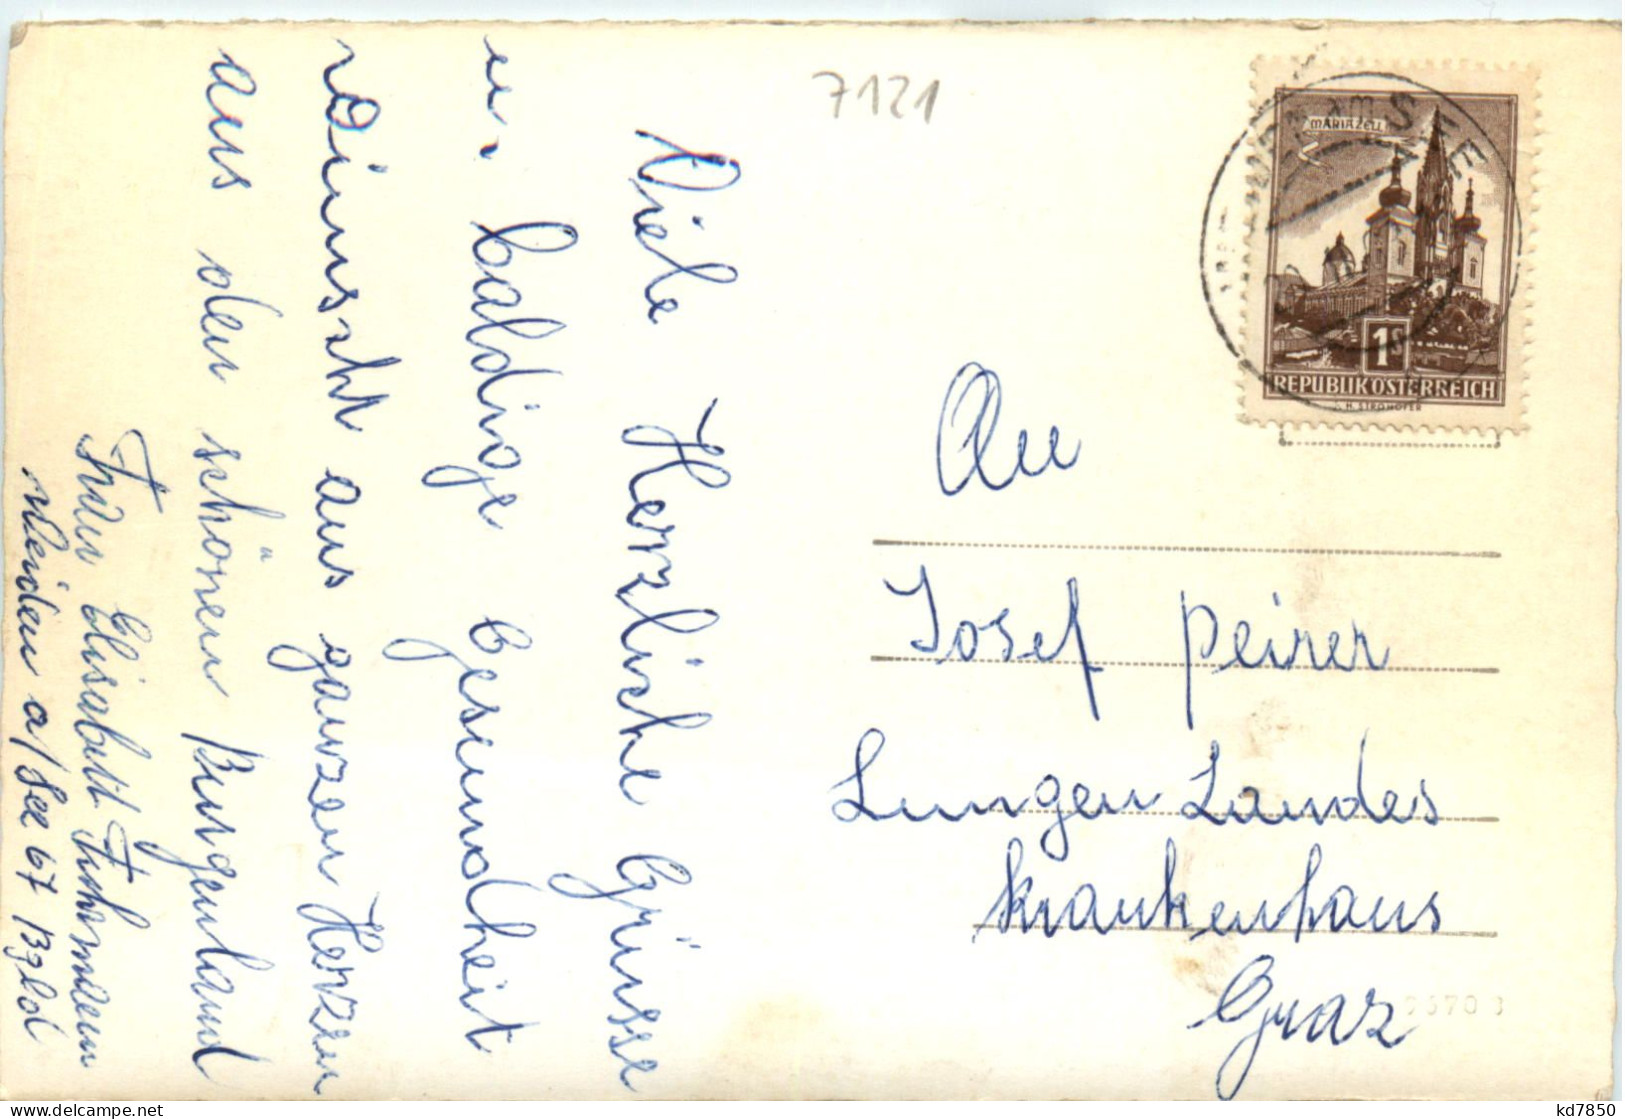 Viele Herzliche Grüsse
u. baldige Gesundheit
Wünscht aus ganzen Herzen
aus den schönen Burgenland
Frau Elisabett Fuhrmann
Weiden a/See 67 Bgld
7121
AM SEE
MARIAZELL
1S
REPUBLIK ÖSTERREICH
An
Josef Peirer
Lungen Landes
Krankenhaus
Graz
kd7850